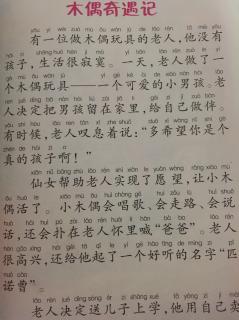 木偶奇遇记
有一位做木偶玩具的老人,他没有
孩子,生活很寂寞。一天,老人做了一
个木偶玩具——一个可爱的小男孩。老
人决定把男孩留在家里,给自己做伴。
有时候,老人叹息着说:“多希望你是个
真的孩子啊!”
仙女帮助老人实现了愿望,让小木
偶活了。小木偶会唱歌、会走路、会说
话,还会扑在老人怀里喊“爸爸”。老人
很高兴,还给他起了一个好听的名字“匹
诺曹”。
老人决定送儿子上学,他用自己卖